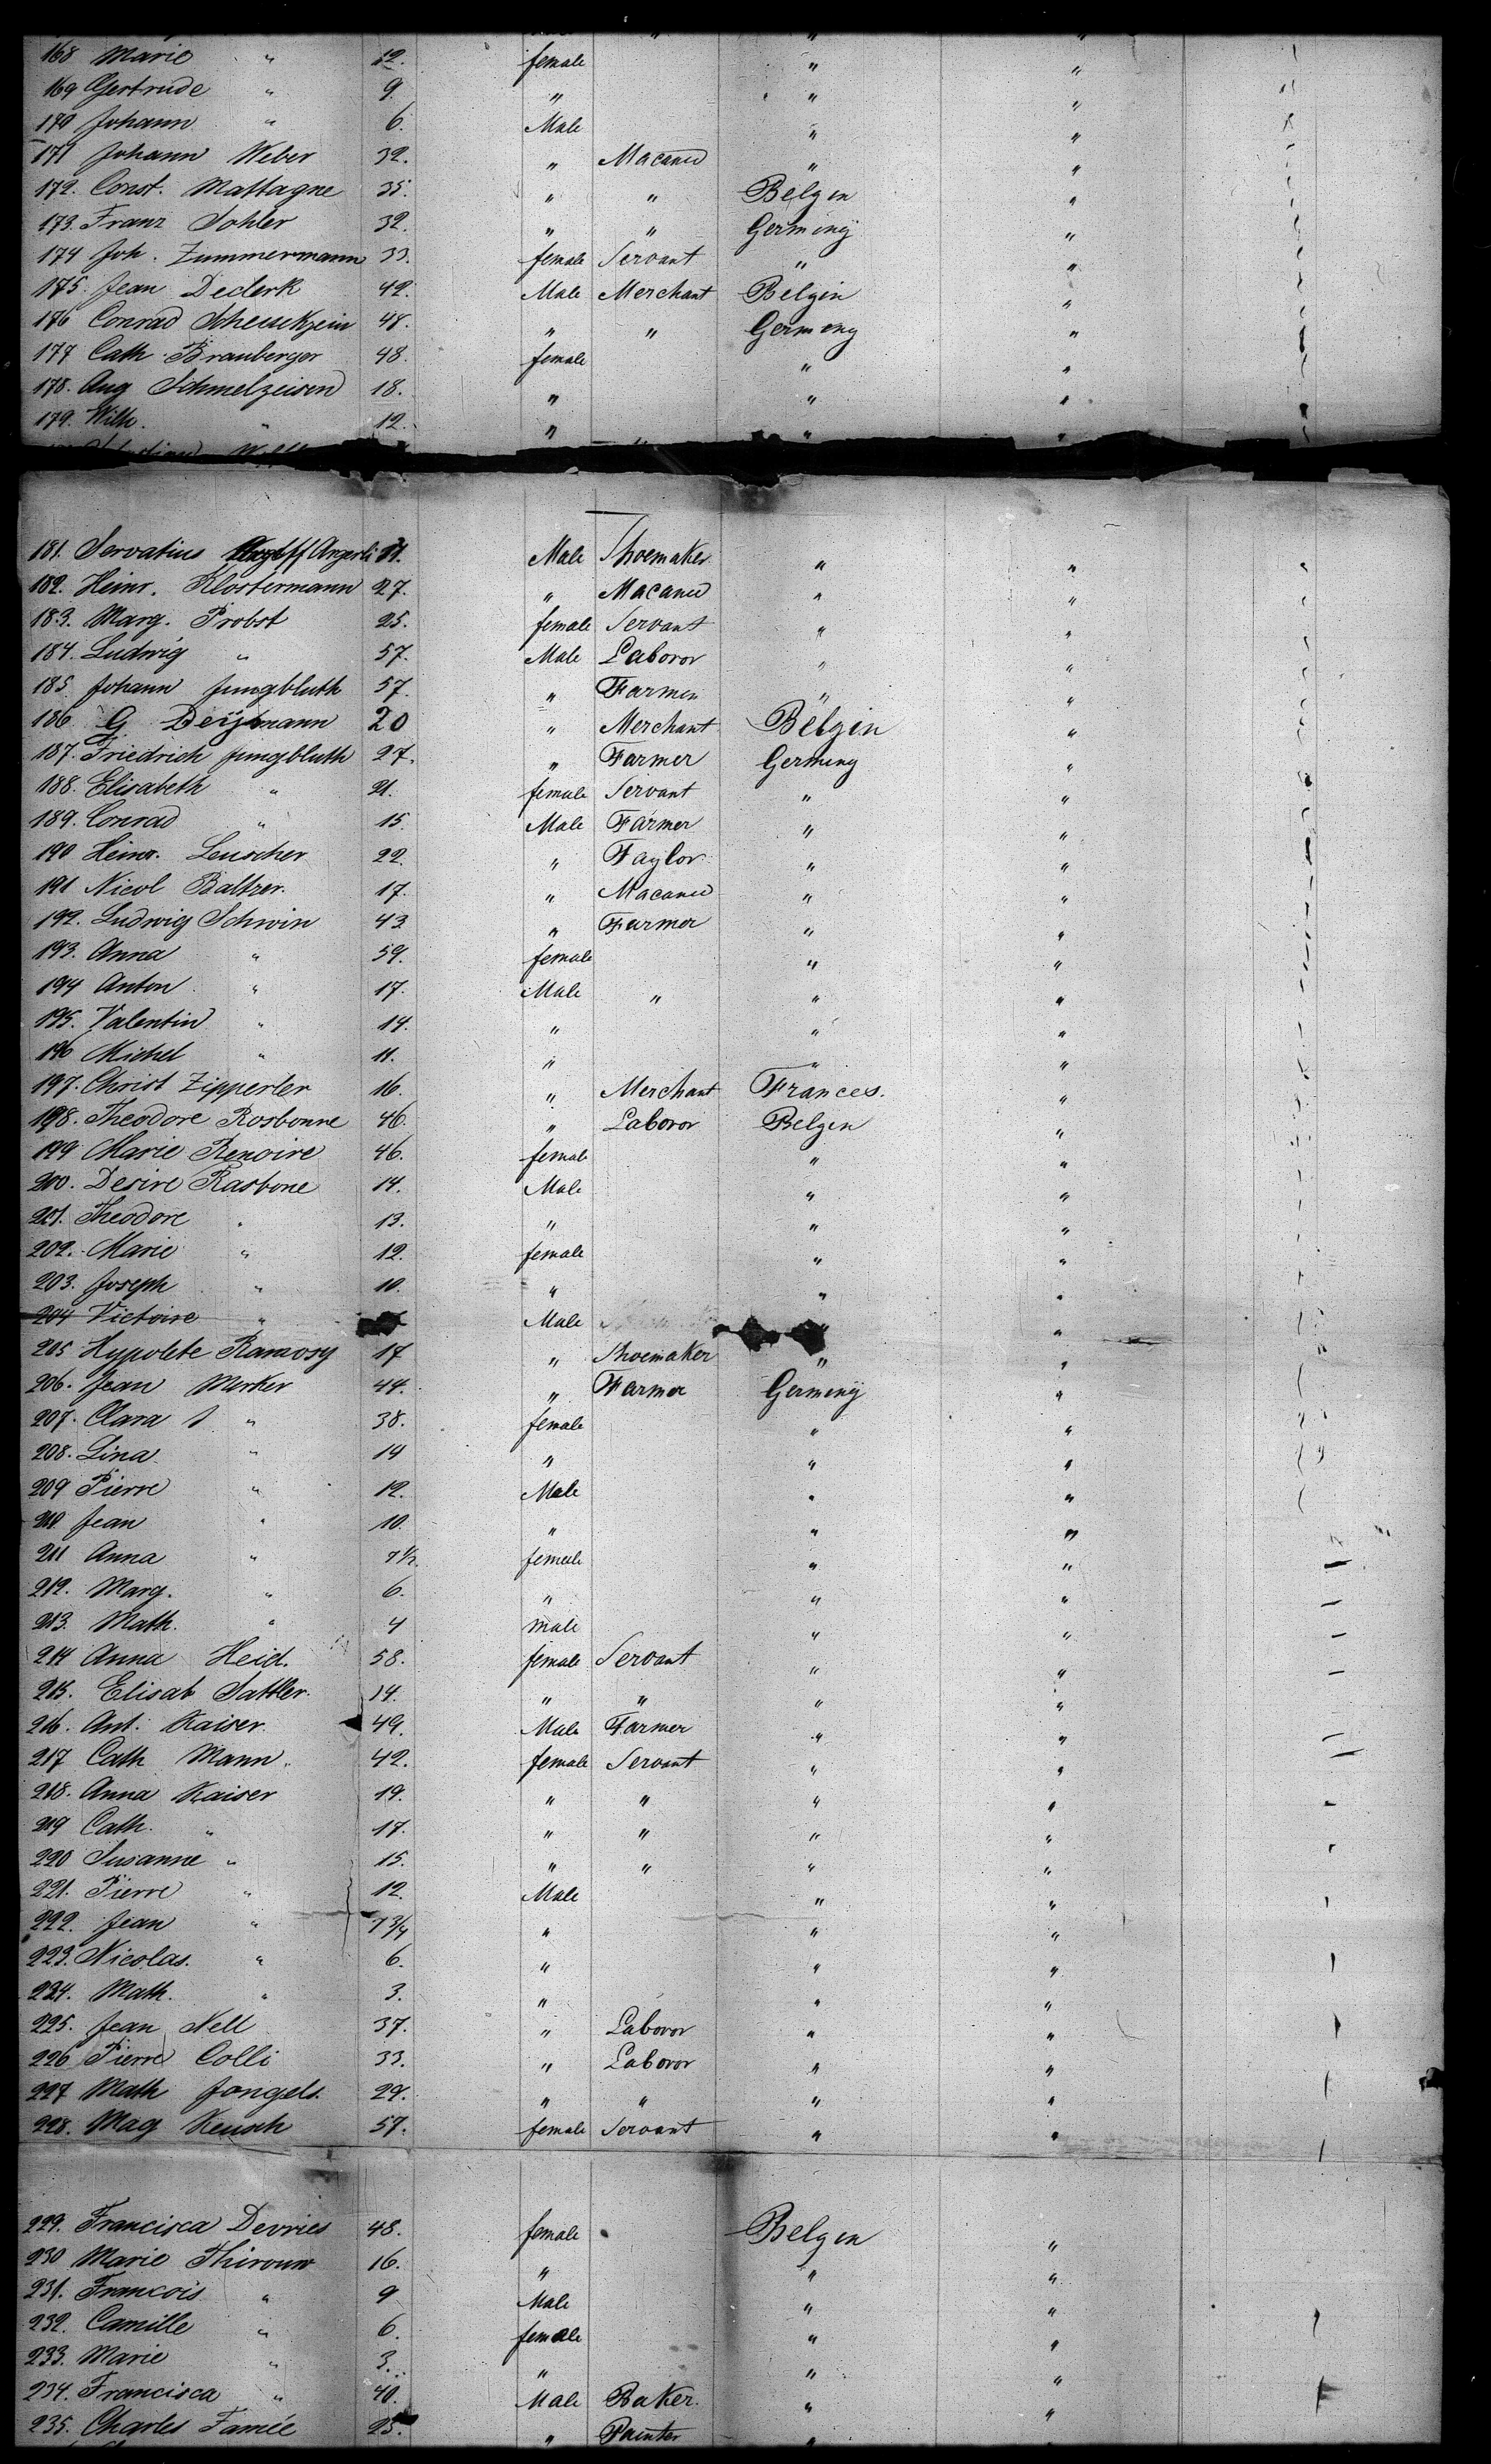 168 Marie " 12. female " "
169 Gertrude " 9. " " "
170 Johann " 6. Male " "
171 Johann Weber 32. " Macanid " "
172. Const. Mattagne 35. " " Belgin "
173. Franz Sohler 32. " " Germiny "
174 Joh. Zummermann 33. female Servant " "
175. Jean Declerk 42. Male Merchant Belgin "
176 Conrad 48. " " Germeny "
177 Cath. Brauberger 48. female " "
178. Aug Schmelzeisen 18. " " "
179. Wilh. " 12. " " "
181. Servatius Angerli Male Shoemaker " "
182. Heinr. Klostermann 27. " Macanid " "
183. Marg. Probst 25. female Servant " "
184. Ludwig " 57. Male Laboror " "
185. Johann Jungbluth 57. " Farmer " "
186 G Deijmann 20 " Merchant Belgin "
187. Friedrich Jungbluth 27. " Farmer Germeny "
188. Elisabeth " 21. female Servant " "
189. Conrad " 15. Male Farmer " "
190 Heinr. Leuscher 22. " Taylor " "
191 Nicol Baltzer. 17. " Macanid " "
192. Ludwig Schwin 43 " Farmer " "
193. Anna " 59. female " "
194 Anton " 17. Male " " "
195. Valentin " 14. " " "
196 Michel " 11. " " "
197. Christ Zipperler 16. " Merchant Frances. "
198. Theodore Rosbonne 46. " Laboror Belgen "
199 Marie Renoire 46. female " "
200. Desire Rasbone 14. Male " "
201. Theodore " 13. " " "
202. Marie " 12. female " "
203. Joseph " 10. " " "
204 Victoire " Male " "
205 Hypolete Ramosy 17 " Shoemaker " "
206. Jean Merker 44. " Farmer Germeny "
207. Clara " 38. female " "
208. Lina " 14 " " "
209 Pierre " 12. Male " "
210 Jean " 10. " " "
211 Anna " 7 1/2. female " "
212. Marg. " 6. " " "
213. Math. " 4 male " "
214 Anna Heid. 58. female Servant " "
215. Elisab Sattler. 14. " " " "
216. Ant. Kaiser. 49. Male Farmer " "
217 Cath Mann. 42. female Servant " "
218. Anna Kaiser 19. " " " "
219 Cath. " 17. " " " "
220 Susanne " 15. " " " "
221. Pierre " 12. Male " "
222. Jean " 7 3/4 " " "
223. Nicolas. " 6. " " "
224. Math. " 3. " " "
225. Jean Nell 37. " Laboror " "
226 Pierre Colli 33. " Laboror " "
227 Math Jongels. 29. " " " "
228. Mag Keusch 57. female Servant " "
229. Francisca Devries 48. female Belgen "
230 Marie Thirouw 16. " " "
231. Francois " 9 Male " "
232. Camille " 6. female " "
233. Marie " 3. " " "
234. Francisca " 40. Male Baker. " "
235. Charles Famée 25. " Painter " "